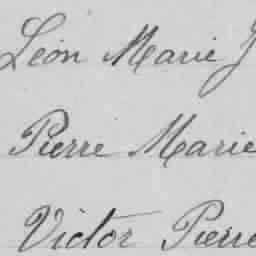 Léon Marie J
Pierre Marie
Victor Pierre